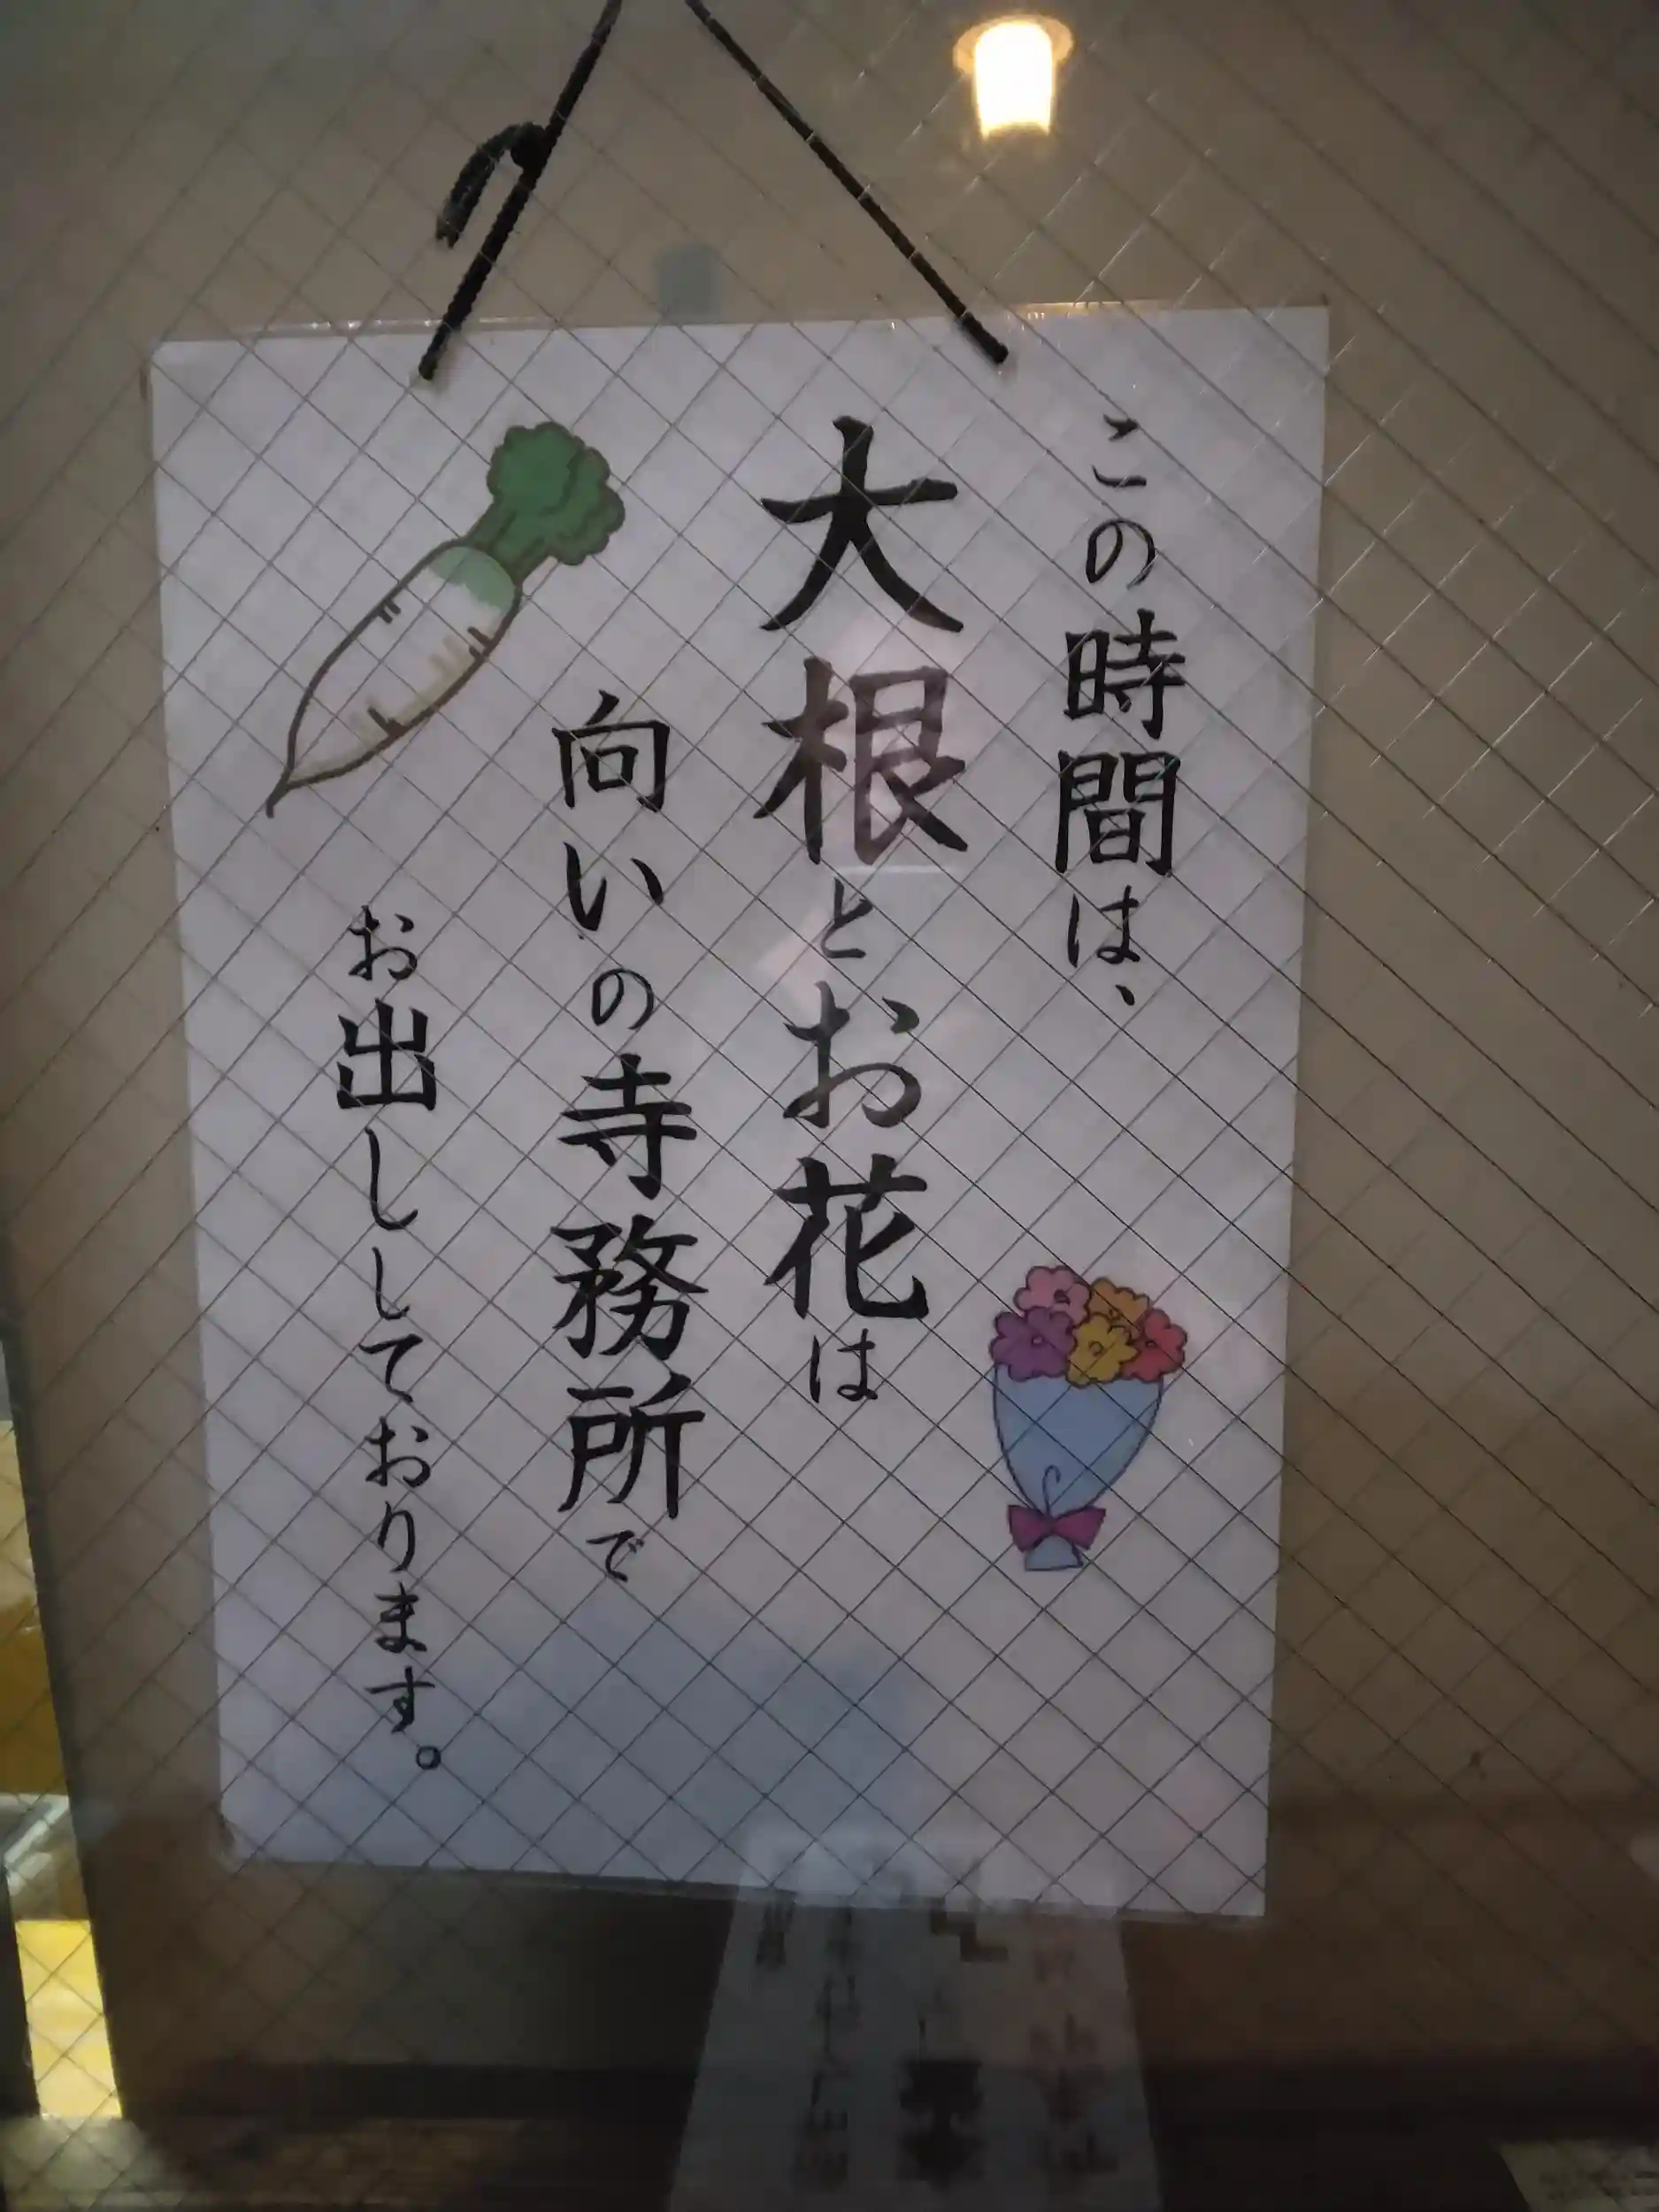 この時間は、
大根とお花は
向いの寺務所で
お出ししております。